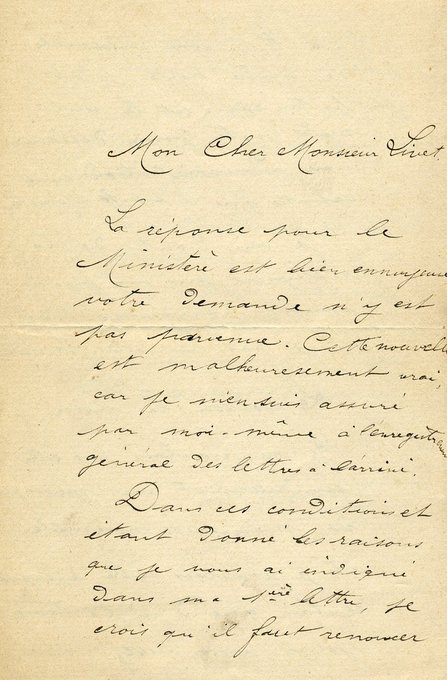 Mon Cher Monsieur Livet,
La réponse pour le
Ministère est bien ennuyeuse
votre demande n'y est
pas parvenue. Cette nouvelle
est malheuresement vrai,
car je m'en suis assuré
par moi-même à l'enregistrement
général des lettres à l'arrivé.
Dans ces conditions et
étant donné les raisons
que je vous ai indiqué
dans ma 1ère lettre, je
crois qu'il faut renoncer